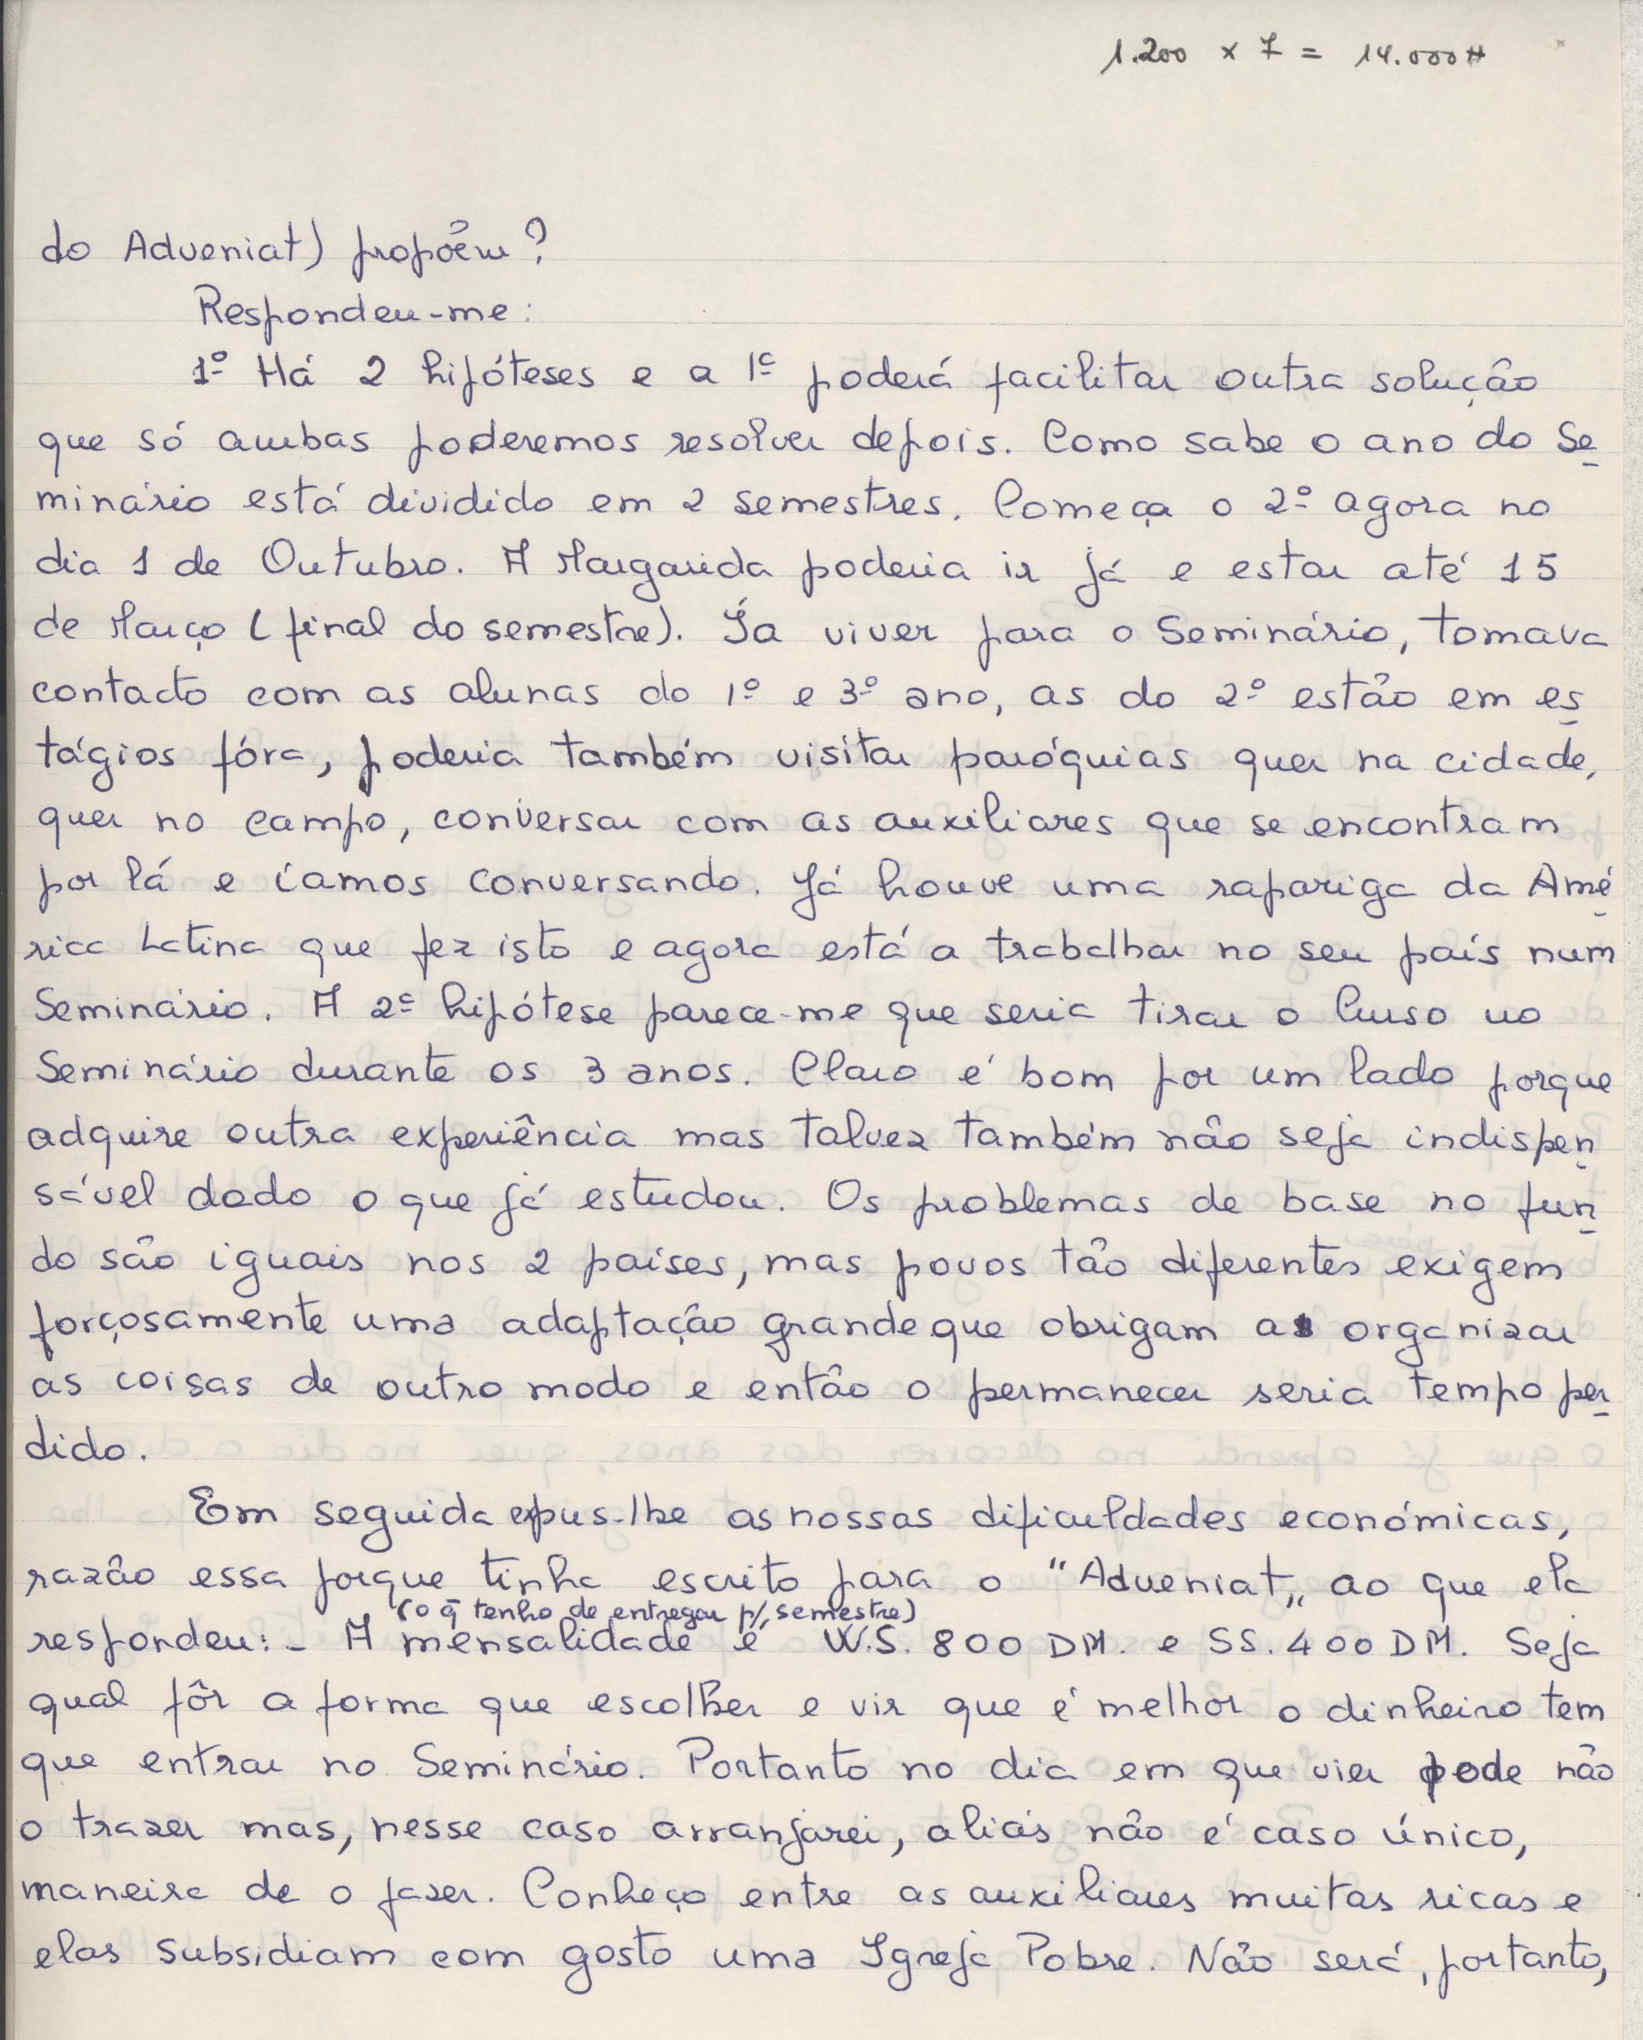 1.200 x 7 = 14.000#
do Adveniat) propõem?
Respondeu-me:
1º Há 2 hipóteses e a 1ª poderá facilitar outra solução
que só ambas poderemos resolver depois. Como sabe o ano do Se
minário está dividido em 2 semestres. Começa o 2º agora no
dia 1 de Outubro. A Margarida poderia ir já e estar até 15
de Março (final do semestre). Ía viver para o Seminário, tomava
contacto com as alunas do 1º e 3º ano, as do 2º estão em es
tágios fóra, poderia também visitar paróquias quer na cidade,
quer no campo, conversar com as auxiliares que se encontram
por lá e íamos conversando. Já houve uma rapariga da Amé
rica Latina que fez isto e agora está a trabalhar no seu país num
Seminário. A 2ª hipótese parece-me que seria tirar o Curso no
Seminário durante os 3 anos. Claro é bom por um lado porque
adquire outra experiência mas talvez também não seja indispen
sável dado o que já estudou. Os problemas de base no fun
do são iguais nos 2 países, mas povos tão diferentes exigem
forçosamente uma adaptação grande que obrigam a organizar
as coisas de outro modo e então o permanecer seria tempo per
dido.
Em seguida expus-lhe as nossas dificuldades económicas,
razão essa porque tinha escrito para o "Adveniat„ ao que ela
(o q̄ tenho de entregar p/ semestre)
respondeu: - A mensalidade é W.S. 800 DM. e SS. 400 DM. Seja
qual fôr a forma que escolher e vir que é melhor o dinheiro tem
que entrar no Seminário. Portanto no dia em que vier pode não
o trazer mas, nesse caso arranjarei, aliás não é caso único,
maneira de o fazer. Conheço entre as auxiliares muitas ricas e
elas subsidiam com gosto uma Igreja Pobre. Não será, portanto,